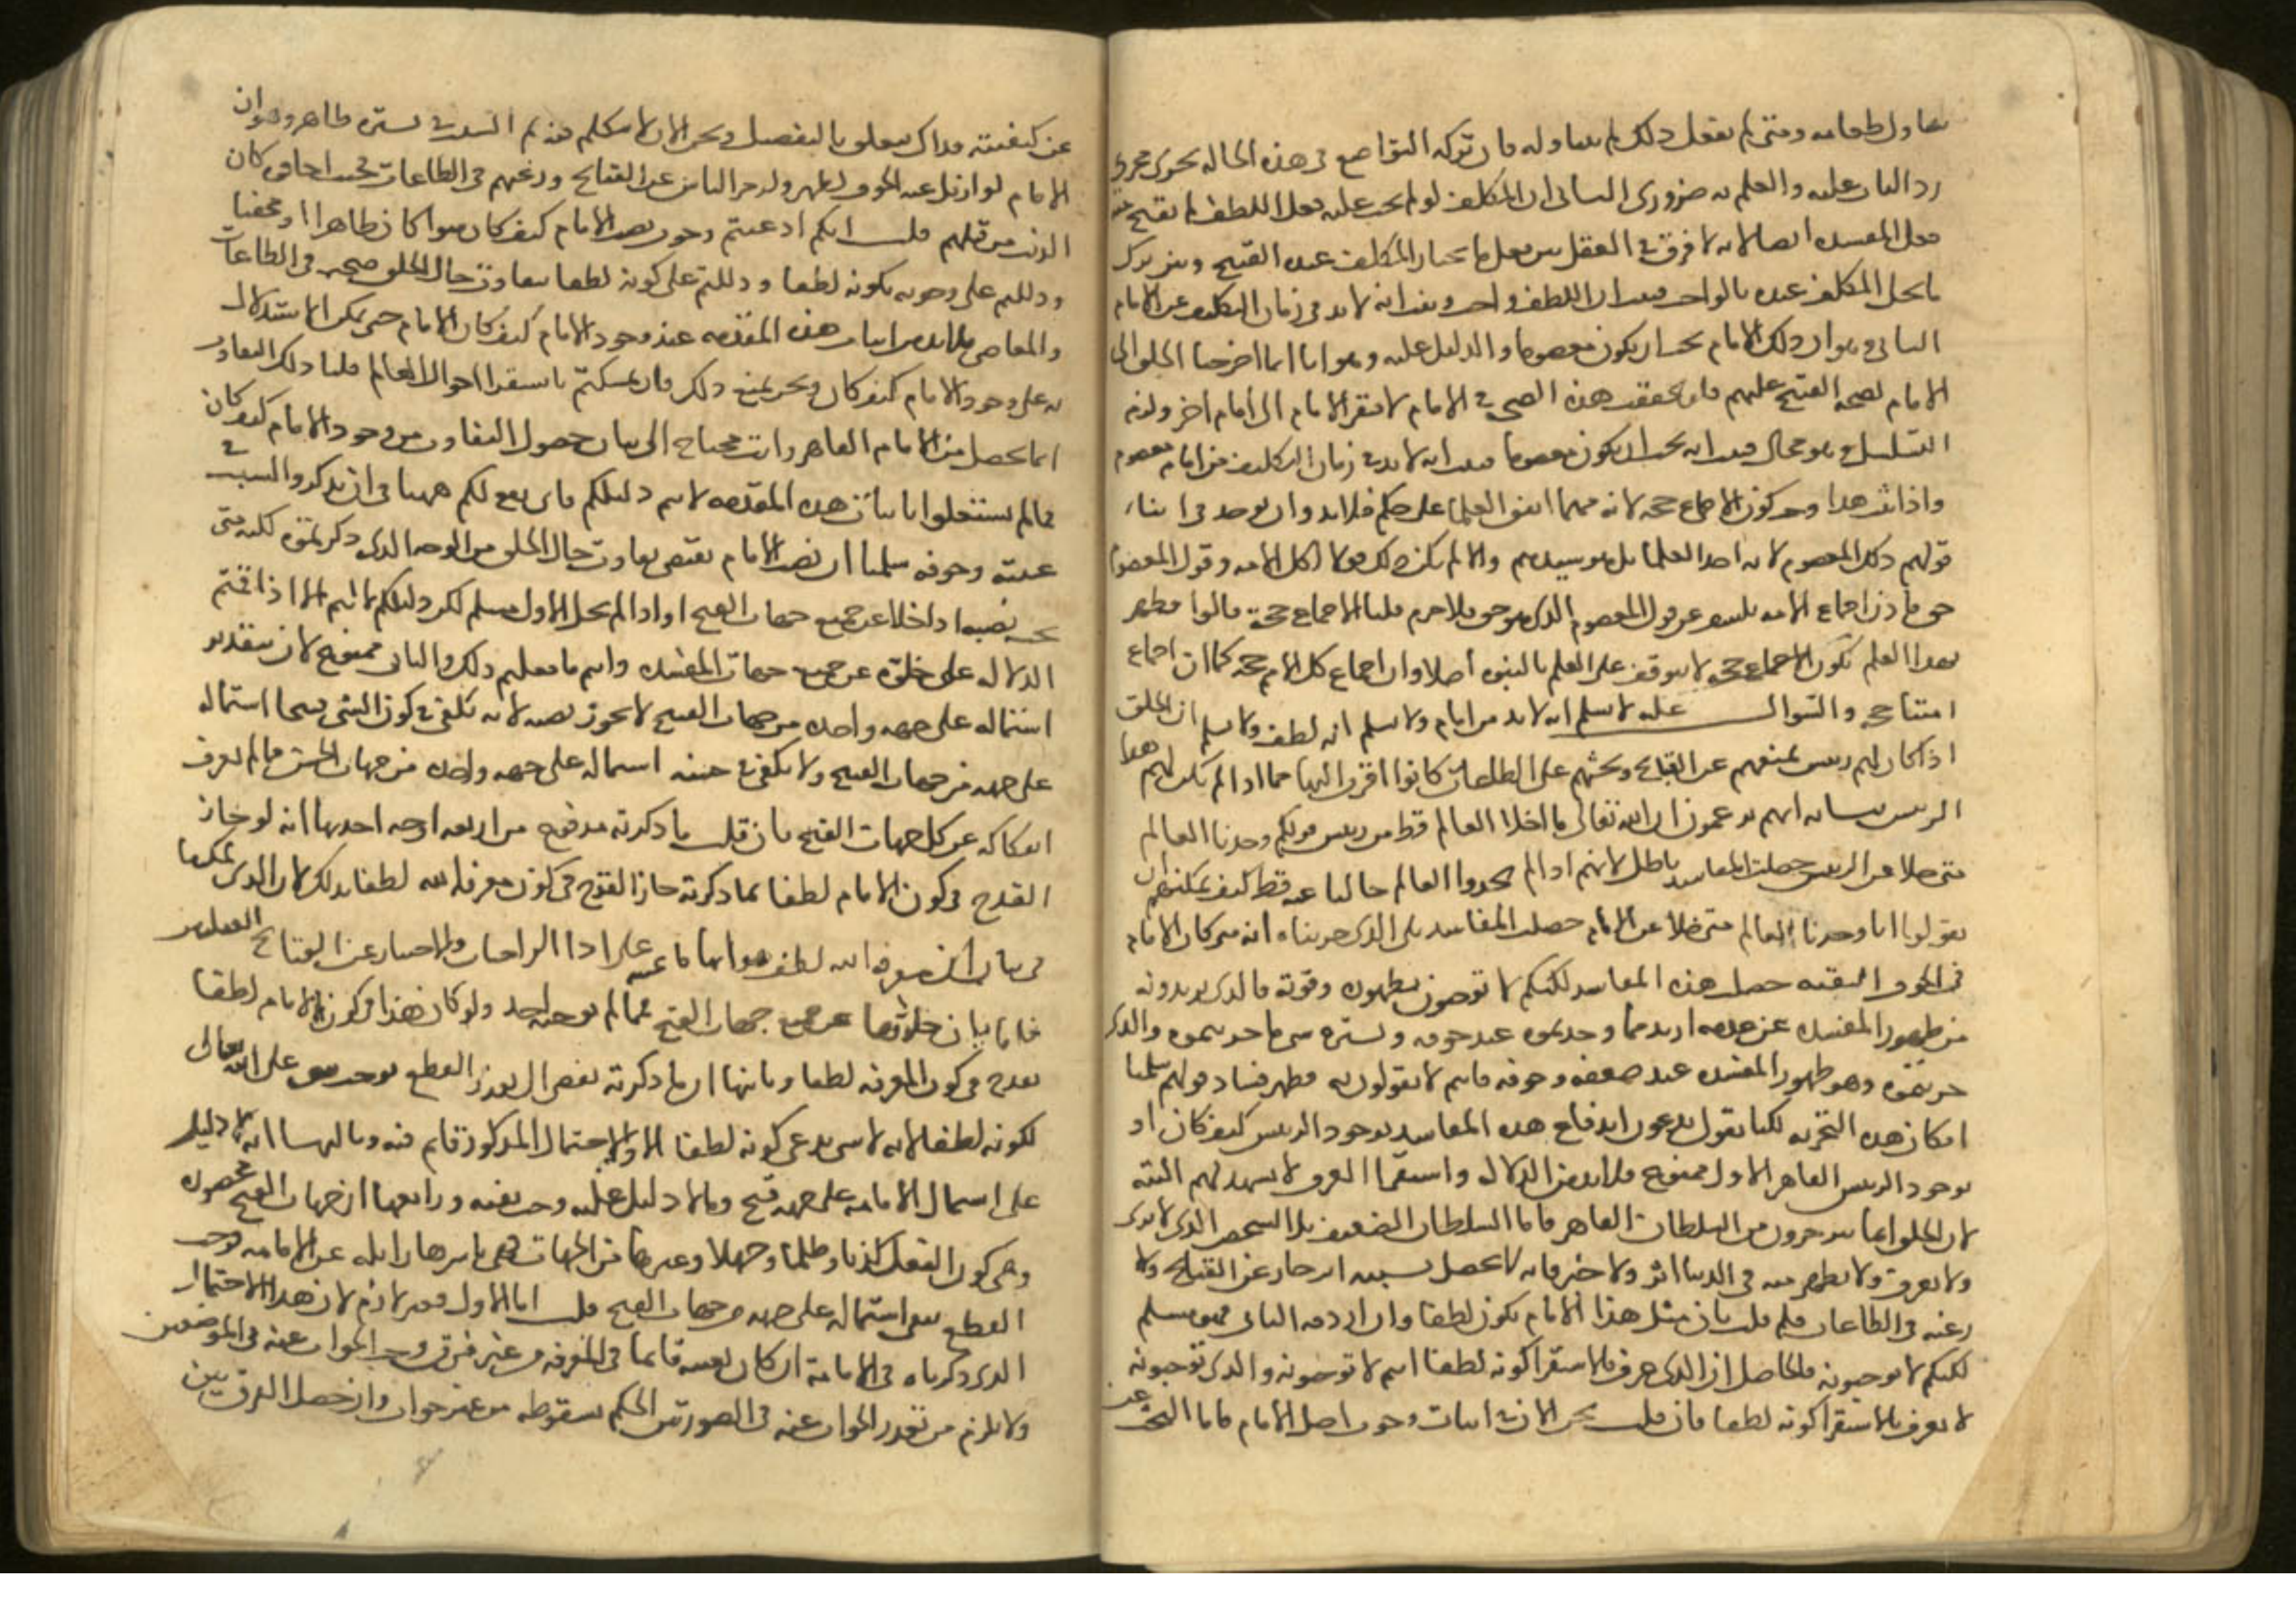 تناول طعامه ومتى لم يفعل ذلك لم يتناوله فان تركه التواضع في هذه الحالة يجرى مجرى
رد الباب عليه والعلم به ضروري الثاني ان المكلف لو لم يجب عليه فعل اللطف لم يقبح منه
فعل المفسدة ايضا لانه لا فرق في العقل بين فعل ما يختار المكلف عنده القبيح وبين ترك
ما يخل المكلف عنده بالواجب فثبت ان اللطف واجب وثبت انه لا بد في زمان التكليف من الامام
الثاني وهو ان ذلك الامام يجب ان يكون معصوما والدليل عليه وهو انا انما احوجنا الخلق الى
الامام لصحة القبيح عليهم فلو تحققت هذه الصحة في الامام لافتقر الامام الى امام اخر ولزم
التسلسل وهو محال فثبت انه يجب ان يكون معصوما فثبت انه لا بد في زمان التكليف من امام معصوم
واذا ثبت هذا وجب كون الاجماع حجة لانه مهما اتفق العلماء على حكم فلا بد وان يوجد في اثناء
قولهم ذلك المعصوم لانه احد العلماء بل هو سيدهم والا لم يكن ذلك قولا لكل الامة وقول المعصوم
حق فاذن اجماع الامة يكشف عن قول المعصوم الذي هو حق فلا جرم قلنا الاجماع حجة قالوا فظهر
بهذا العلم بكون الاجماع حجة لا يتوقف على العلم بالنبوة اصلا وان اجماع كل الامم حجة كما ان اجماع
امتنا حجة والسؤال عليه لا نسلم انه لا بد من امام ولا نسلم انه لطف ولا نسلم ان الخلق
اذا كان لهم رئيس يمنعهم عن القبائح ويحثهم على الطاعات كانوا اقرب اليها مما اذا لم يكن لهم هذا
الرئيس بيانه انهم يزعمون ان الله تعالى ما اخلا العالم قط من رئيس فقولكم وجدنا العالم
متى خلا عن الرئيس حصلت المفاسد باطل لانهم اذا لم يجدوا العالم خاليا عنه قط كيف يمكنهم ان
يقولوا انا وجدنا العالم متى خلا عن الامام حصلت المفاسد بلى الذي جربناه انه متى كان الامام
في الخوف والتقية حصل هذه المفاسد لكنكم لا توجبون ظهوره وقوته فالذي تريدونه
من ظهور المفسدة عن عدمه اردتم ما وجدتموه عند خوفه وتستره شي ما جربتموه والذي
جربتموه وهو ظهور المفسدة عند ضعفه وخوفه فانتم لا تقولون به فظهر فساد قولهم سلمنا
امكان هذه التجربة لكنا نقول تدعون اندفاع هذه المفاسد بوجود الرئيس كيف كان او
بوجود الرئيس القاهر الاول ممنوع فلا بد من الدلالة واستقراء العرف لا يشهد لهم البتة
لان الخلق انما ينزجرون من السلطان القاهر فاما السلطان الضعيف بل الشخص الذي لا يرى
ولا يعرف ولا يظهر منه في الدنيا اثر ولا خبر فانه لا يحصل بسببه انزجار عن القبائح ولا
رغبة في الطاعات فلم قلت بان مثل هذا الامام يكون لطفا وان اردتم الثاني فهو مسلم
لكنكم لا توجبونه فالحاصل ان الذي عرف بالاستقراء كونه لطفا انتم لا توجبونه والذي توجبونه
لا يعرف بالاستقراء كونه لطفا فان قلت نحن الان في اثبات وجوب اصل الامام فاما البحث عن
عن كيفيته فذاك يتعلق بالتفصيل ونحن الان لا نتكلم فيه ثم السبب في تستره ظاهر وهو ان
الامام لو ازيل عنه الخوف لظهر ولزجر الناس عن القبائح ورغبهم في الطاعات فحيث اخافوه كان
الذنب من قبلهم قلت انكم ادعيتم وجوب نصب الامام كيف كان سواء كان ظاهرا او مخفيا
ودللتم على وجوبه بكونه لطفا ودللتم على كونه لطفا بتفاوت حال الخلق معه في الطاعات
والمعاصي فلا بد من اثبات هذه المقدمة عند وجود الامام كيف كان الامام حتى يمكن الاستدلال
به على وجود الامام كيف كان ونحن نمنع ذلك فان تمسكتم باستقراء احوال العالم قلنا ذلك التفاوت
انما يحصل من الامام القاهر وانت محتاج الى بيان حصول التفاوت من وجود الامام كيف كان
فما لم يستقلوا باثبات هذه المقدمة لا يتم دليلكم فاي نفع لكم ههنا في ان تذكروا السبب في
غيبته وخوفه سلمنا ان نصب الامام يقتضي تفاوت حال الخلق من الوجه الذي ذكرتموه لكنه متى
يجب نصبه اذا خلا عن جميع جهات القبح او اذا لم يخل الاول مسلم لكن دليلكم لا يتم الا اذا اقمتم
الدلالة على خلوه عن جميع جهات المفسدة وانتم ما فعلتم ذلك والثاني ممنوع لان بتقدير
اشتماله على جهة واحدة من جهات القبح لا يجوز نصبه لانه يكفي في كون الشي قبيحا اشتماله
على جهة من جهات القبح ولا يكفي في حسنه اشتماله على جهة واحدة من جهات الحسن ما لم يعرف
انفكاكه عن كل جهات القبح فان قلت ما ذكرته مدفوع من اربعة اوجه احدها انه لو جاز
القدح في كون الامام لطفا بما ذكرته جاز القدح في كون معرفة الله لطفا بذلك لان الذي يمكننا
في بيان ان معرفة الله لطف هو انها باعثة على اداء الواجبات والاحتراز عن القبائح العقلية
فاما بيان خلوها عن جميع جهات القبح فمما لم يوجبه احد ولو كان هذا في كون الامام لطفا
يقدح في كون المعرفة لطفا وثانيها ان ما ذكرته يفضي الى تعذر القطع بوجوب شي على الله تعالى
لكونه لطفا لانه لا شي يدعى كونه لطفا الا والاحتمال المذكور قائم فيه وثالثها انه لا دليل
على اشتمال الامامة على جهة قبح وما لا دليل عليه وجب نفيه ورابعها ان جهات القبح محصورة
وهي كون الفعل كذبا وظلما وجهلا وغيرها من الجهات وهي باسرها زائلة عن الامامة فوجب
القطع بنفي اشتماله على جهة من جهات القبح قلت اما الاول فغير لازم لان هذا الاحتمال
الذي ذكرناه في الامامة ان كان بعينه قائما في المعرفة من غير فرق وجب الجواب عنه في الموضعين
ولا يلزم من تعذر الجواب عنه في الصورتين الحكم بسقوطه من غير جواب وان حصل الفرق بين